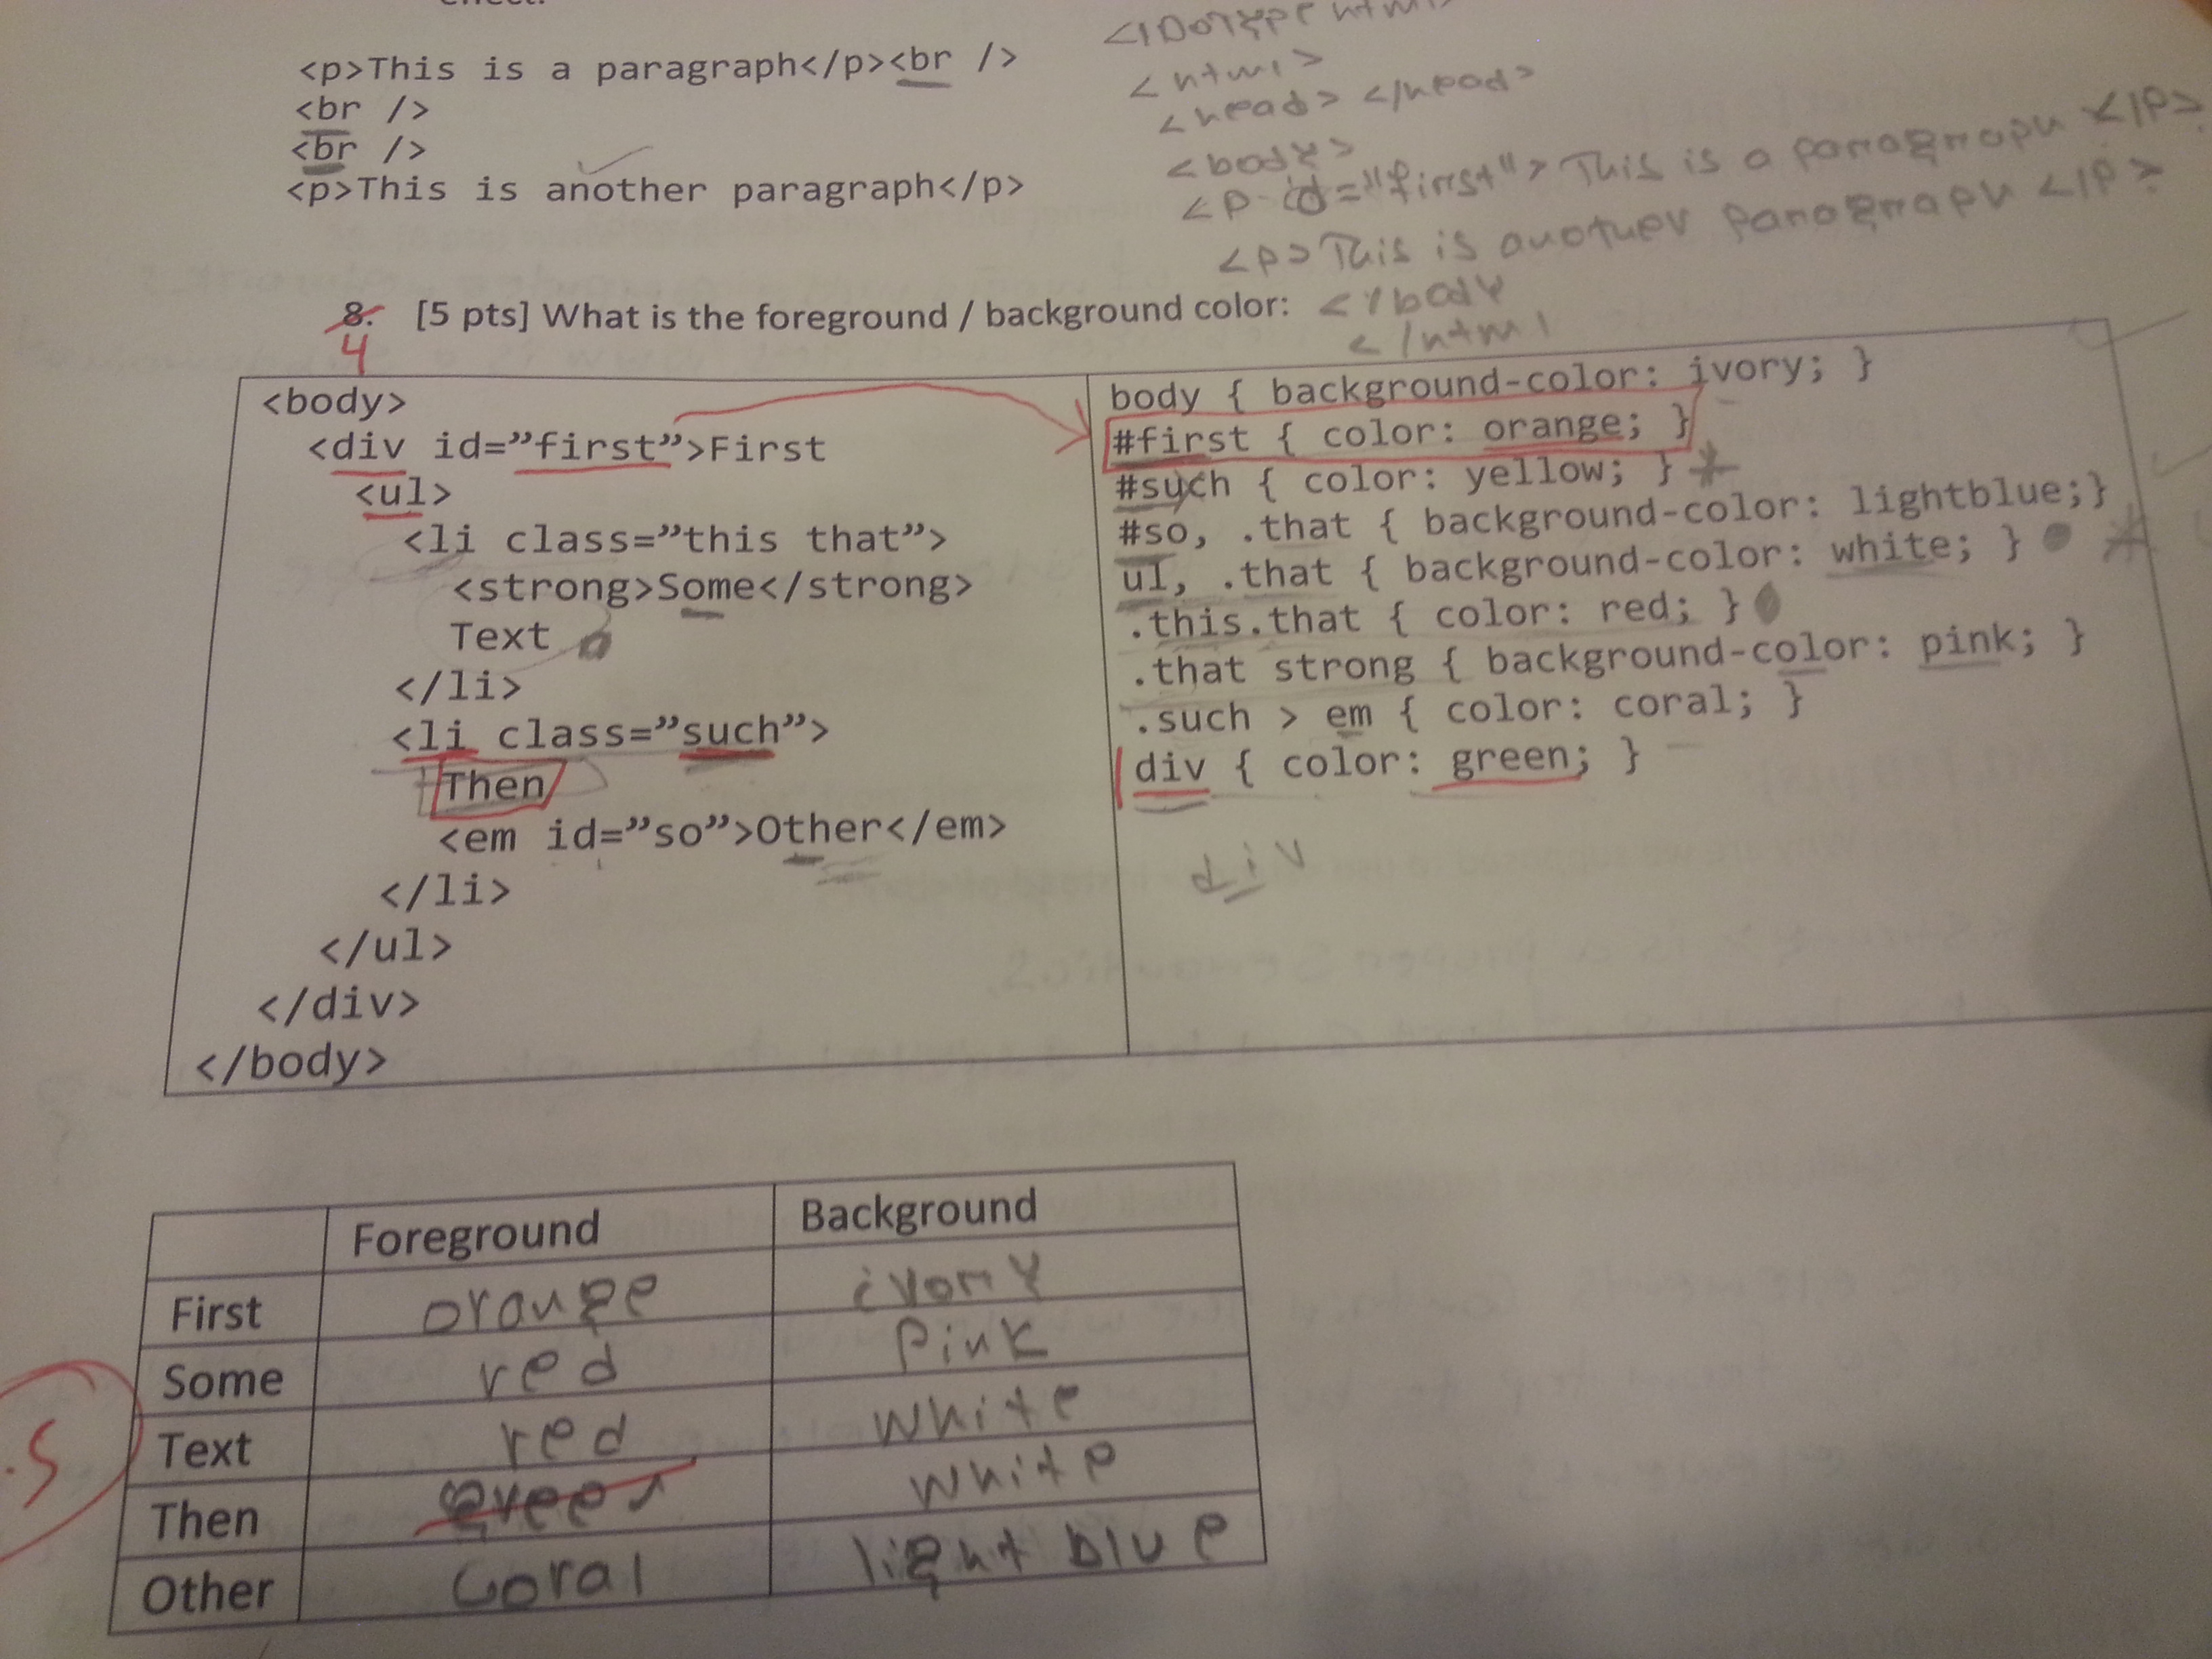 effect.
<p>This is a paragraph</p><br />
<br />
<br />
<p>This is another paragraph</p>
<!DOTYPE html>
<html>
<head> </head>
<body>
<p id="first"> This is a paragraph </p>
<p>This is another paragraph </p>
</body
</html
8. [5 pts] What is the foreground / background color:
4
<body>
<div id=”first”>First
<ul>
<li class=”this that”>
<strong>Some</strong>
Text
</li>
<li class=”such”>
Then
<em id=”so”>Other</em>
</li>
</ul>
</div>
</body>
body { background-color: ivory; }
#first { color: orange; }
#such { color: yellow; }
#so, .that { background-color: lightblue;}
ul, .that { background-color: white; }
.this.that { color: red; }
.that strong { background-color: pink; }
.such > em { color: coral; }
div { color: green; }
div
Foreground Background
First orange ivory
Some red pink
Text red white
Then green white
Other coral light blue
.5